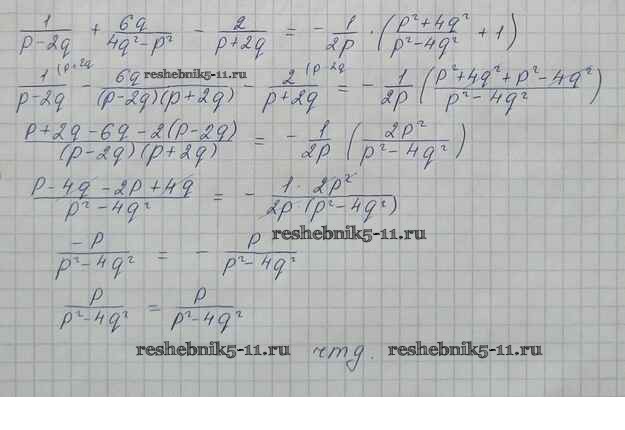 1/(p-2q) + 6q/(4q²-p²) - 2/(p+2q) = - 1/2p · (p²+4q²/p²-4q² + 1)
1(p+2q/(p-2q) - 6q/((p-2q)(p+2q)) - 2(p-2q/(p+2q) = - 1/2p (p²+4q²+p²-4q²/p²-4q²)
reshebnik5-11.ru
p+2q-6q-2(p-2q)/((p-2q)(p+2q)) = - 1/2p (2p²/p²-4q²)
p-4q-2p+4q/(p²-4q²) = - 1·2p²/(2p·(p²-4q²))
reshebnik5-11.ru
-p/(p²-4q²) = - p/(p²-4q²)
p/(p²-4q²) = p/(p²-4q²)
reshebnik5-11.ru чтд. reshebnik5-11.ru
reshebnik5-11.ru